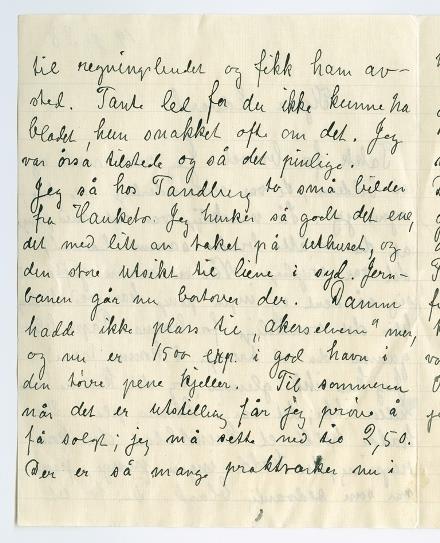 til regningsbudet og fikk ham av-
sted. Tante led for du ikke kunne ha
bladet, hun snakket ofte om det. Jeg
var også tilstede og så det pinlige.
Jeg så hos Tandberg to små bilder
fra Hauketo. Jeg husker så godt det ene,
det med litt av taket på uthuset, og
den store utsikt til liene i syd. Jern-
banen går nu bortover der. Damm
hadde ikke plass til „akerselven" mer,
og nu er 1500 exp. i god havn i
den tørre pene kjeller. Til sommeren
når det er utstilling får jeg prøve å
få solgt; jeg må sette ned til 2,50.
Der er så mange praktverker nu i